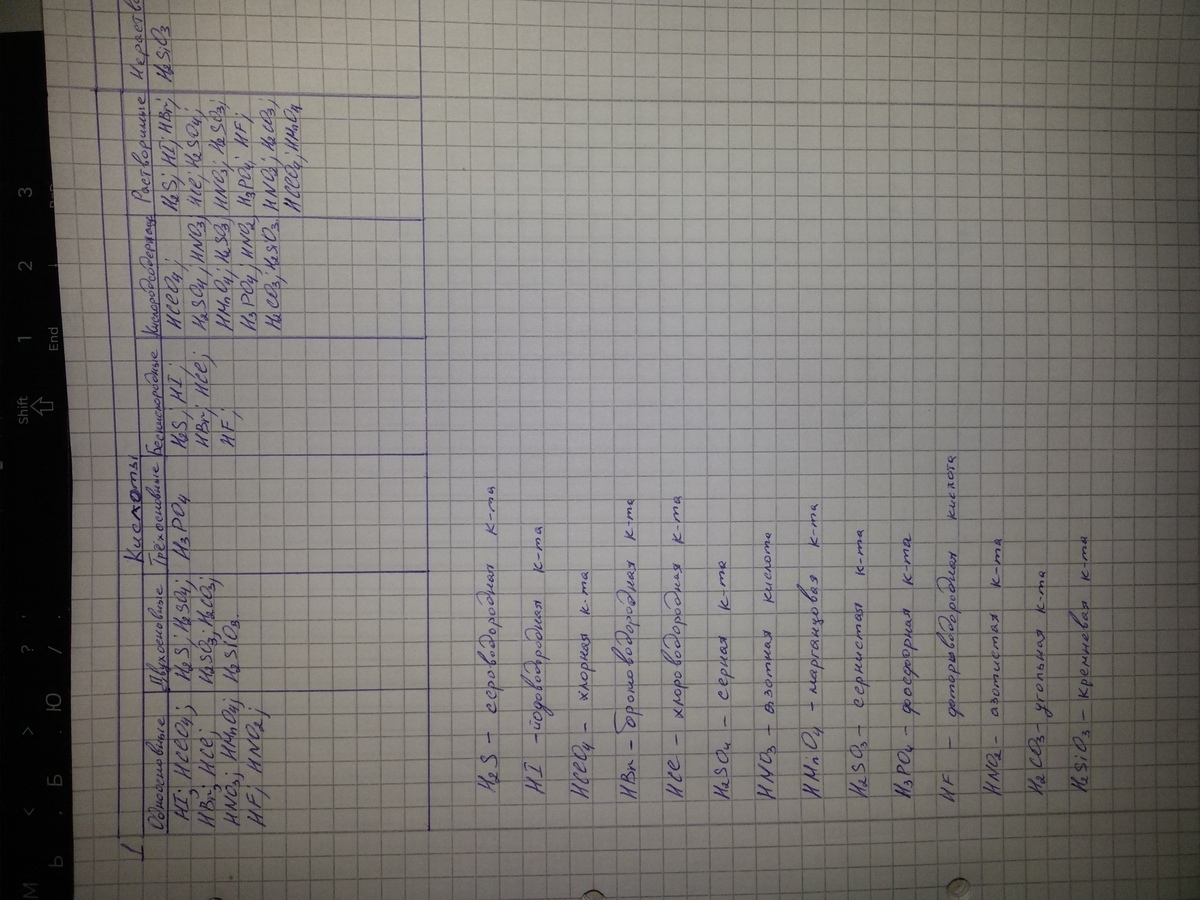 1
Кислоты
Одноосновные Двухосновные Трёхосновные Бескислородные Кислородсодержащ Растворимые Нераство
HI; HClO4;
HBr; HCl;
HNO3; HMnO4;
HF; HNO2;
H2S; H2SO4;
H2SO3; H2CO3;
H2SIO3.
H3PO4
H2S; HI;
HBr; HCl;
HF;
HClO4;
H2SO4; HNO3;
HMnO4; H2SO3;
H3PO4; HNO2
H2CO3; H2SIO3.
H2S; HI; HBr;
HCl; H2SO4;
HNO3; H2SO3;
H3PO4; HF;
HNO2; H2CO3;
HClO4; HMnO4
H2SiO3
H2S – сероводородная к-та
HI – йодоводородная к-та
HClO4 – хлорная к-та
HBr – бромоводородная к-та
HCl – хлороводородная к-та
H2SO4 – серная к-та
HNO3 – азотная кислота
HMnO4 – марганцовая к-та
H2SO3 – сернистая к-та
H3PO4 – фосфорная к-та
HF – фтороводородная кислота
HNO2 – азотистая к-та
H2CO3 – угольная к-та
H2SiO3 – кремневая к-та
Shift
End
1 2 3
М < > ? ;
Ь . Б . Ю / .